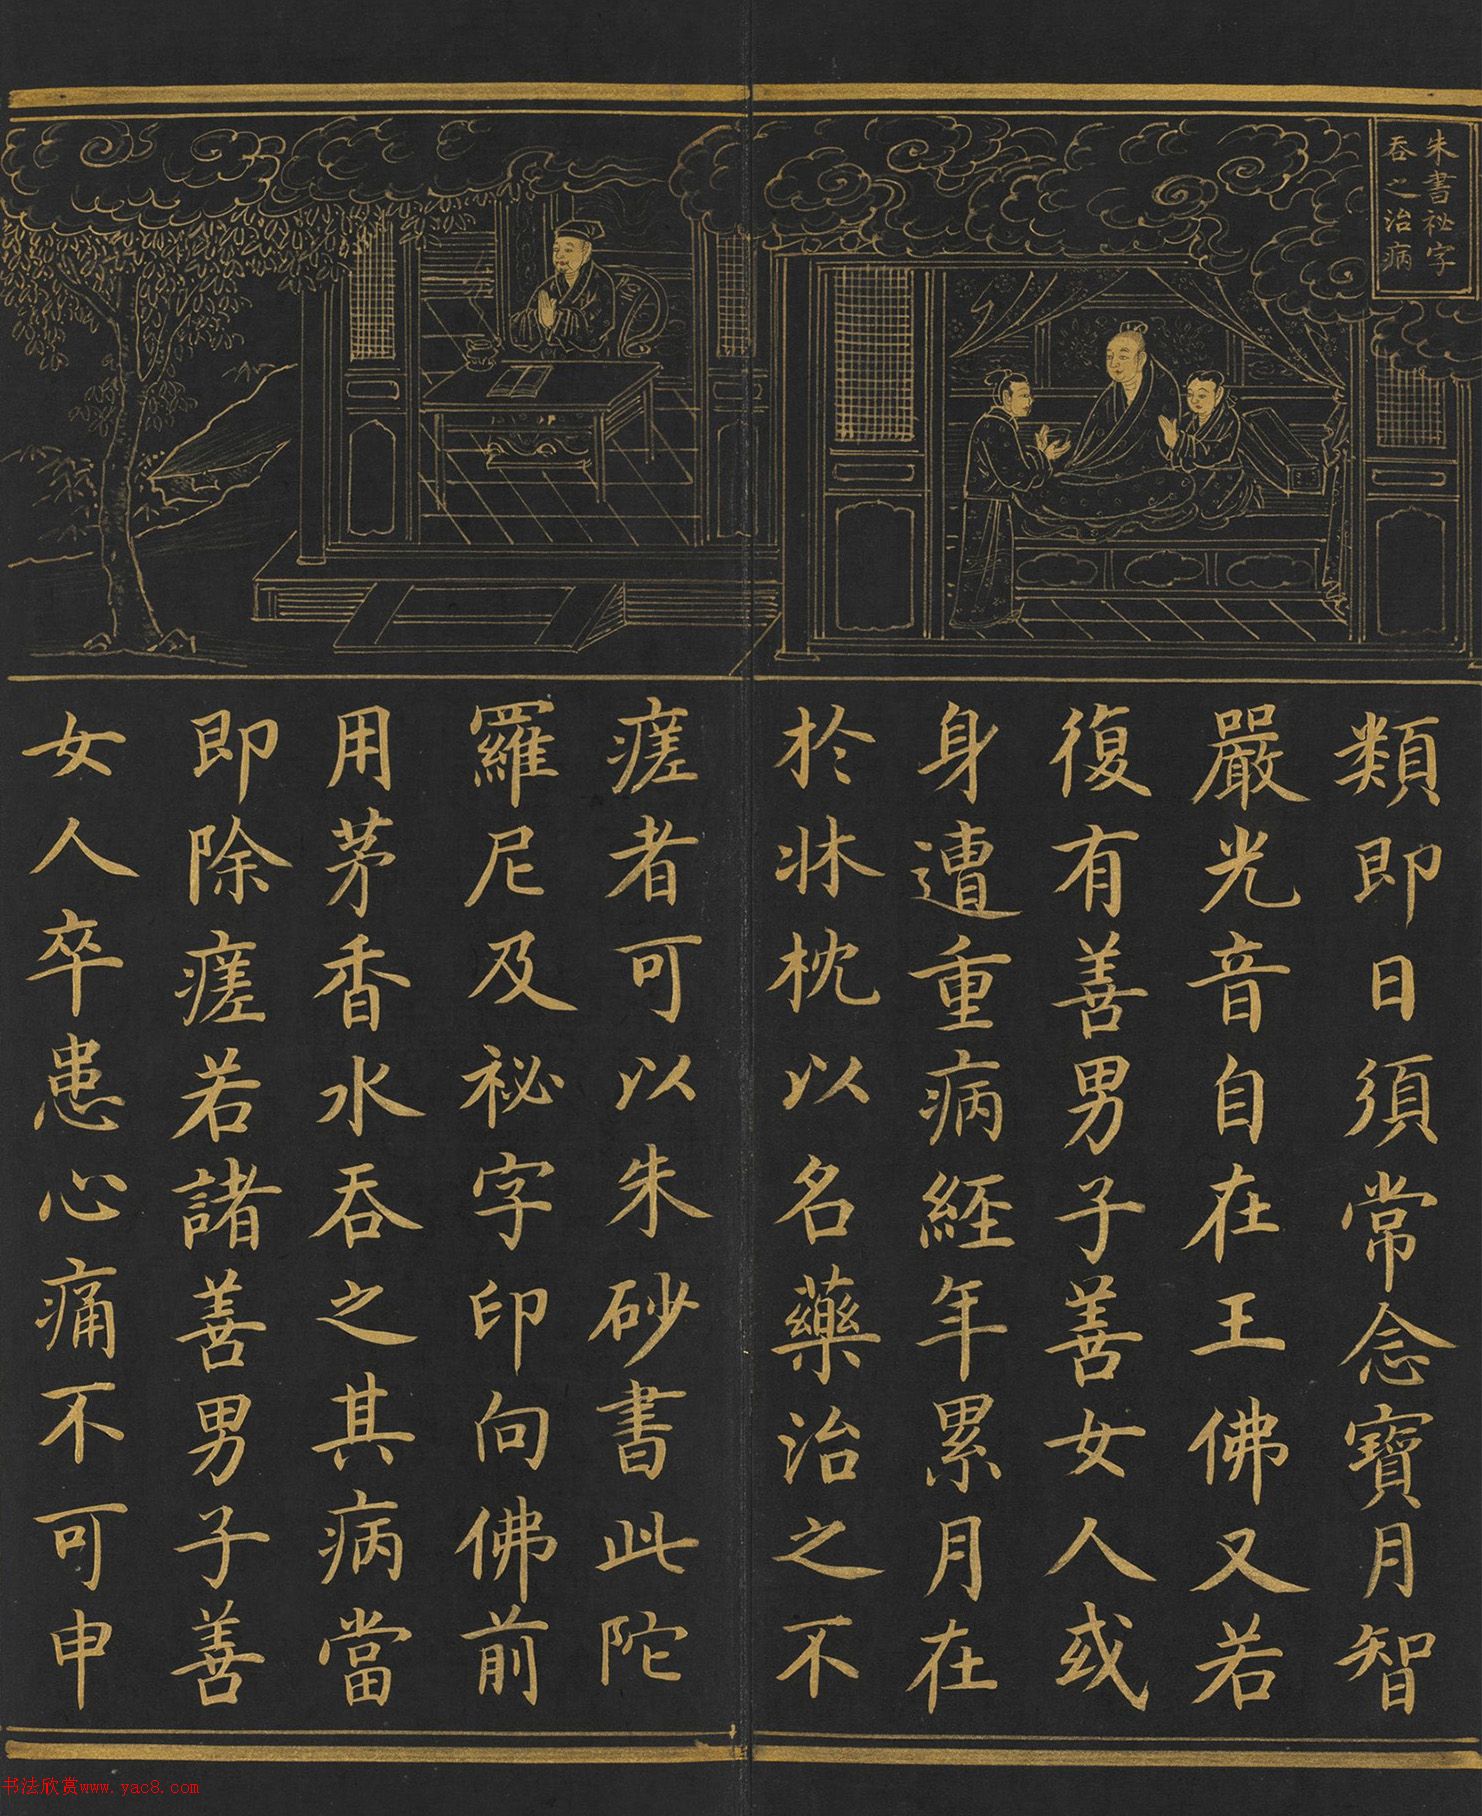 朱書祕字
吞之治病
類即日須常念寶月智
嚴光音自在王佛又若
復有善男子善女人或
身遭重病經年累月在
於牀枕以名藥治之不
瘥者可以朱砂書此陀
羅尼及祕字印向佛前
用茅香水吞之其病當
即除瘥若諸善男子善
女人卒患心痛不可申
书法欣赏www.yac8.com